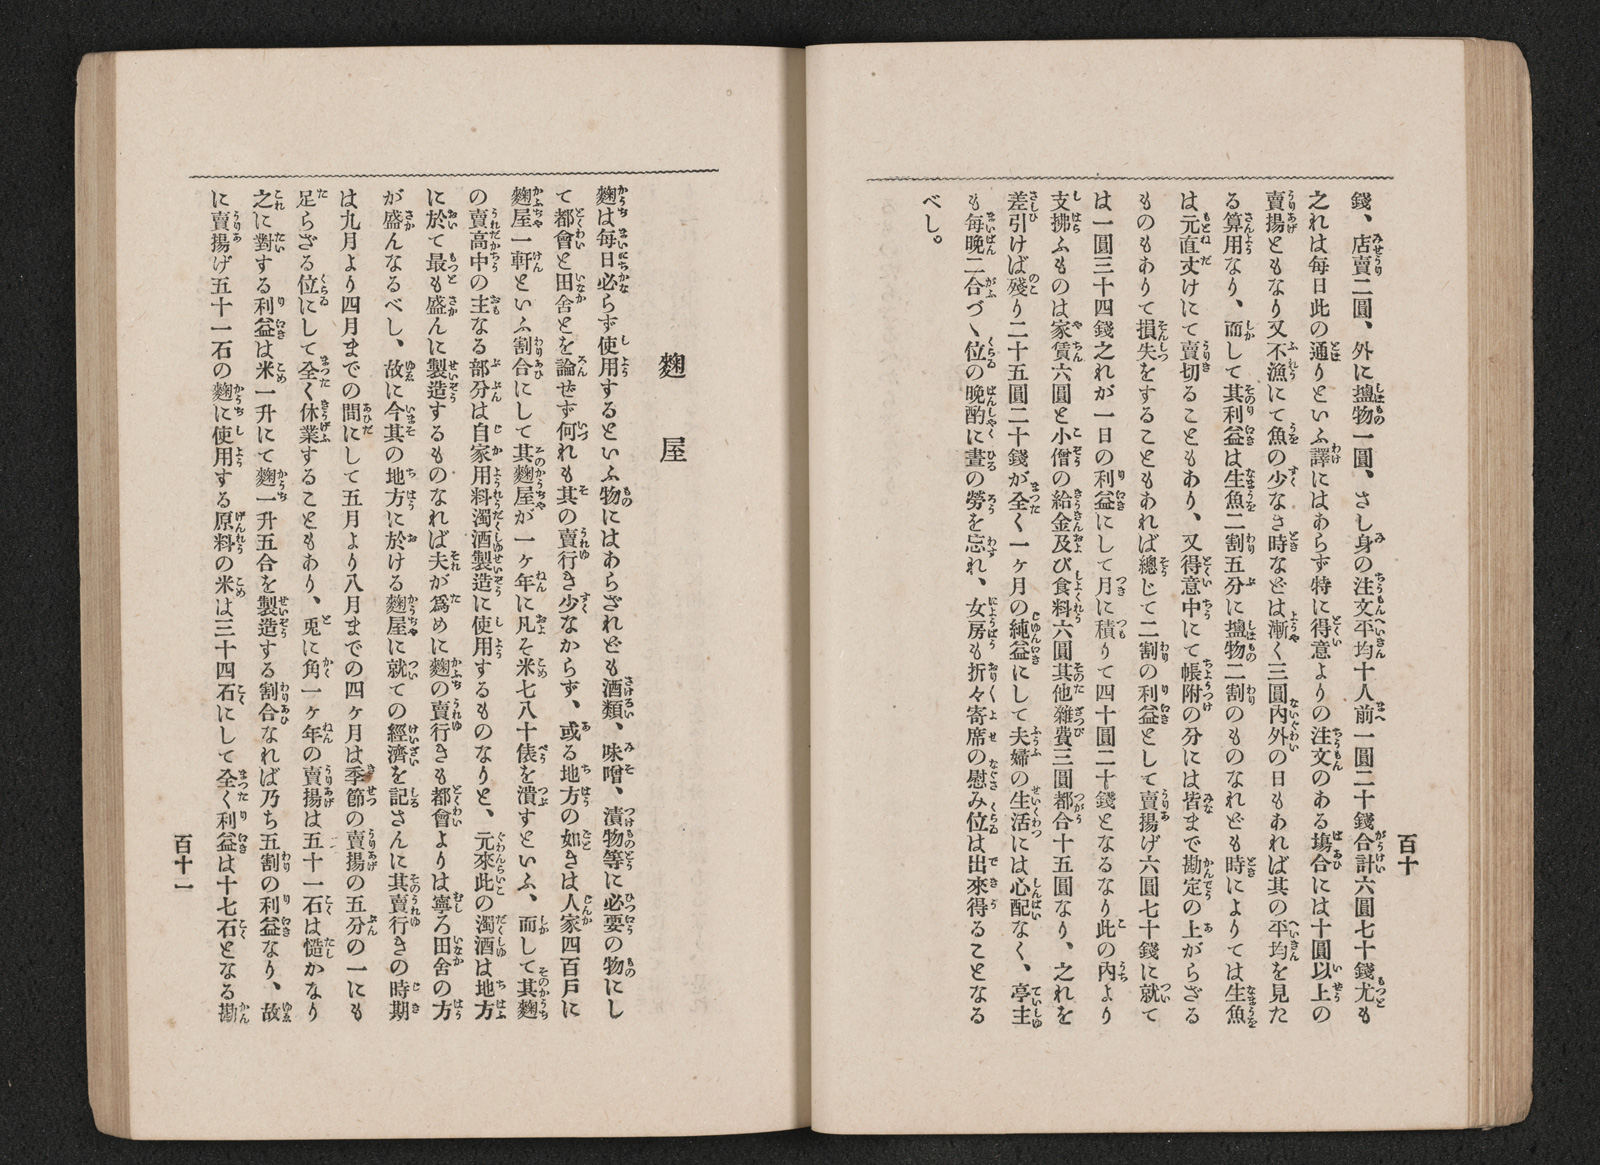 百十
錢、店賣二圓、外に鹽物一圓、さし身の注文平均十人前一圓二十錢合計六圓七十錢尤も
之れは毎日此の通りといふ譯にはあらず特に得意よりの注文のある塲合には十圓以上の
賣揚ともなり又不漁にて魚の少なき時などは漸く三圓內外の日もあれば其の平均を見た
る算用なり、而して其利益は生魚二割五分に鹽物二割のものなれども時によりては生魚
は元直丈けにて賣切ることもあり、又得意中にて帳附の分には皆まで勘定の上がらざる
ものもありて損失をすることもあれば總じて二割の利益として賣揚げ六圓七十錢に就て
は一圓三十四錢之れが一日の利益にして月に積りて四十圓二十錢となるなり此の內より
支拂ふものは家賃六圓と小僧の給金及び食料六圓其他雜費三圓都合十五圓なり、之れを
差引けば殘り二十五圓二十錢が全く一ヶ月の純益にして夫婦の生活には心配なく、亭主
も每晩二合づヽ位の晩酌に晝の勞を忘れ、女房も折々寄席の慰み位は出來得ることなる
べし。
麴屋
麴は每日必らず使用するといふ物にはあらざれども酒類、味噌、漬物等に必要の物にし
て都會と田舍とを論せず何れも其の賣行き少なからず、或る地方の如きは人家四百戶に
麴屋一軒といふ割合にして其麴屋が一ヶ年に凡そ米七八十俵を潰すといふ、而して其麴
の賣高中の主なる部分は自家用料濁酒製造に使用するものなりと、元來此の濁酒は地方
に於て最も盛んに製造するものなれば夫が爲めに麴の賣行きも都會よりは寧ろ田舍の方
が盛んなるべし、故に今其の地方に於ける麴屋に就ての經濟を記さんに其賣行きの時期
は九月より四月までの間にして五月より八月までの四ヶ月は季節の賣揚の五分の一にも
足らざる位にして全く休業することもあり、兎に角一ヶ年の賣揚は五十一石は慥かなり
之に對する利益は米一升にて麴一升五合を製造する割合なれば乃ち五割の利益なり、故
に賣揚げ五十一石の麴に使用する原料の米は三十四石にして全く利益は十七石となる勘
百十一